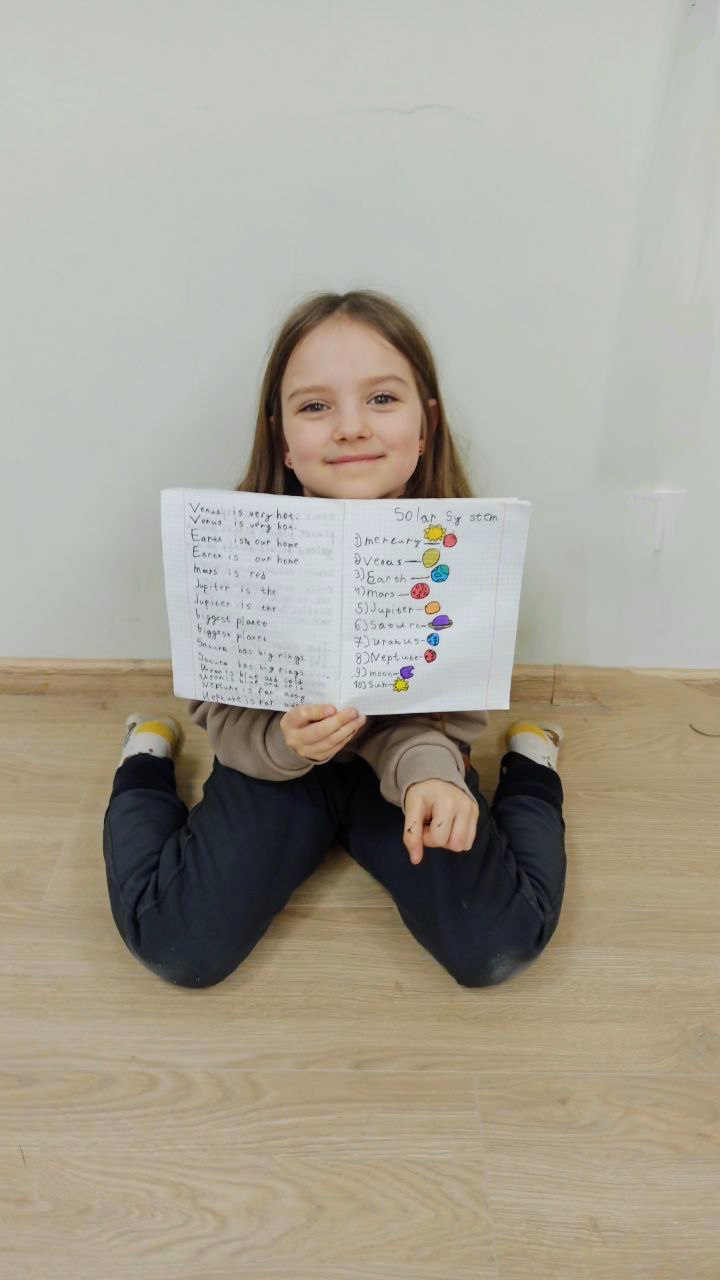 Venus is very hot.
Venus is very hot.
Earth is our home
Earth is our home
Mars is red
Jupiter is the
Jupiter is the
biggest planet
biggest planet
Saturn has big rings.
Saturn has big rings.
Uran is blue and cold
Uran is blue and cold
Neptune is far away
Neptune is far
Solar System
1) mercury
2) Venus
3) Earth
4) mars
5) Jupiter
6) Saturn
7) uranus
8) Neptune
9) moon
10) Sun